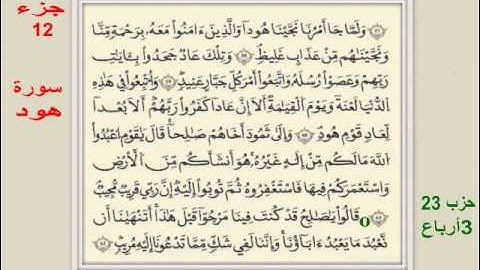 جزء
12
سورة
هود
وَلَمَّا جَآءَ أَمْرُنَا نَجَّيْنَا هُودًا وَالَّذِينَ ءَامَنُوا مَعَهُۥ بِرَحْمَةٍ مِّنَّا
وَنَجَّيْنَٰهُم مِّنْ عَذَابٍ غَلِيظٍ ٥٨ وَتِلْكَ عَادٌ جَحَدُوا بِـَٔايَٰتِ
رَبِّهِمْ وَعَصَوْا رُسُلَهُۥ وَاتَّبَعُوا أَمْرَ كُلِّ جَبَّارٍ عَنِيدٍ ٥٩ وَأُتْبِعُوا فِى هَٰذِهِ
الدُّنْيَا لَعْنَةً وَيَوْمَ الْقِيَٰمَةِ أَلَآ إِنَّ عَادًا كَفَرُوا رَبَّهُمْ أَلَا بُعْدًا
لِّعَادٍ قَوْمِ هُودٍ ٦٠ وَإِلَىٰ ثَمُودَ أَخَاهُمْ صَٰلِحًا قَالَ يَٰقَوْمِ اعْبُدُوا
اللَّهَ مَا لَكُم مِّنْ إِلَٰهٍ غَيْرُهُۥ هُوَ أَنشَأَكُم مِّنَ الْأَرْضِ
وَاسْتَعْمَرَكُمْ فِيهَا فَاسْتَغْفِرُوهُ ثُمَّ تُوبُوٓا إِلَيْهِ إِنَّ رَبِّى قَرِيبٌ مُّجِيبٌ
قَالُوا يَٰصَٰلِحُ قَدْ كُنتَ فِينَا مَرْجُوًّا قَبْلَ هَٰذَآ أَتَنْهَىٰنَآ أَن
نَّعْبُدَ مَا يَعْبُدُ ءَابَآؤُنَا وَإِنَّنَا لَفِى شَكٍّ مِّمَّا تَدْعُونَآ إِلَيْهِ مُرِيبٍ ٦٢
حزب 23
3أرباع